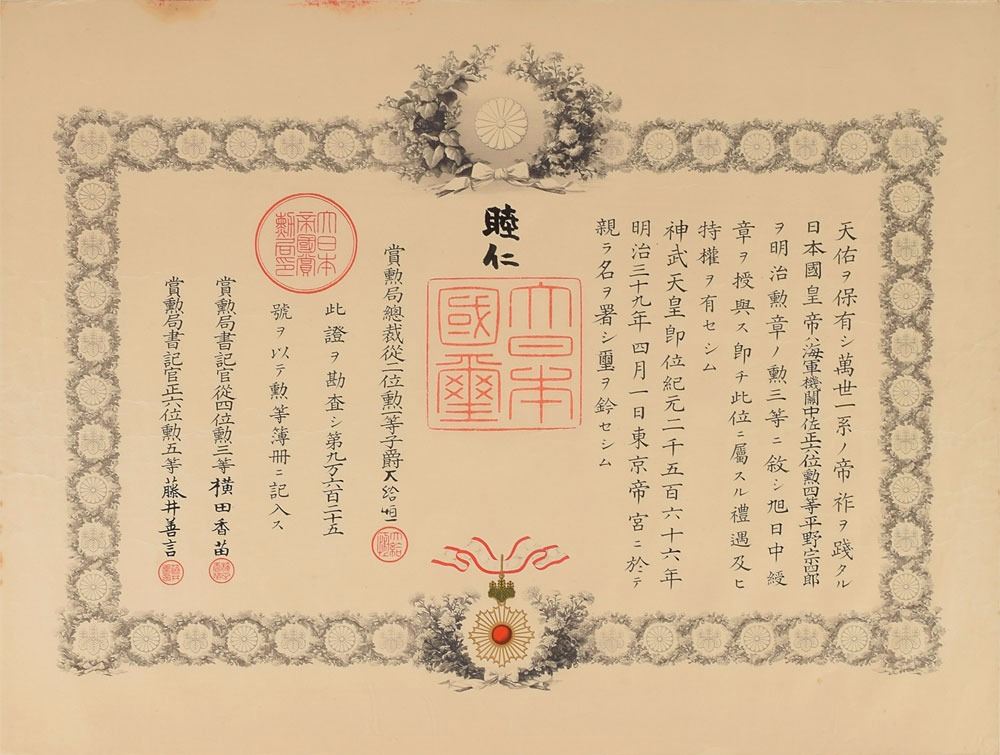 天佑ヲ保有シ萬世一系ノ帝祚ヲ踐タル
日本國皇帝ハ海軍機關中佐正六位勲四等平野宗四郎
ヲ明治勲章ノ勲三等ニ敘シ旭日中綬
章ヲ授與ス即チ此位ニ屬スル禮遇及ヒ
特權ヲ有セシム
神武天皇即位紀元二千五百六十六年
明治三十九年四月一日東京帝宮ニ於テ
親ラ名ヲ署シ璽ヲ鈐セシム
睦仁
大日本
國璽
賞勲局總裁從二位勲一等子爵大給恒
此證ヲ勘査シ第九万六百二十五
號ヲ以テ勲等簿冊ニ記入ス
大日本
帝國賞
勲局印
賞勲局書記官從四位勲三等横田香苗
賞勲局書記官正六位勲五等藤井善言